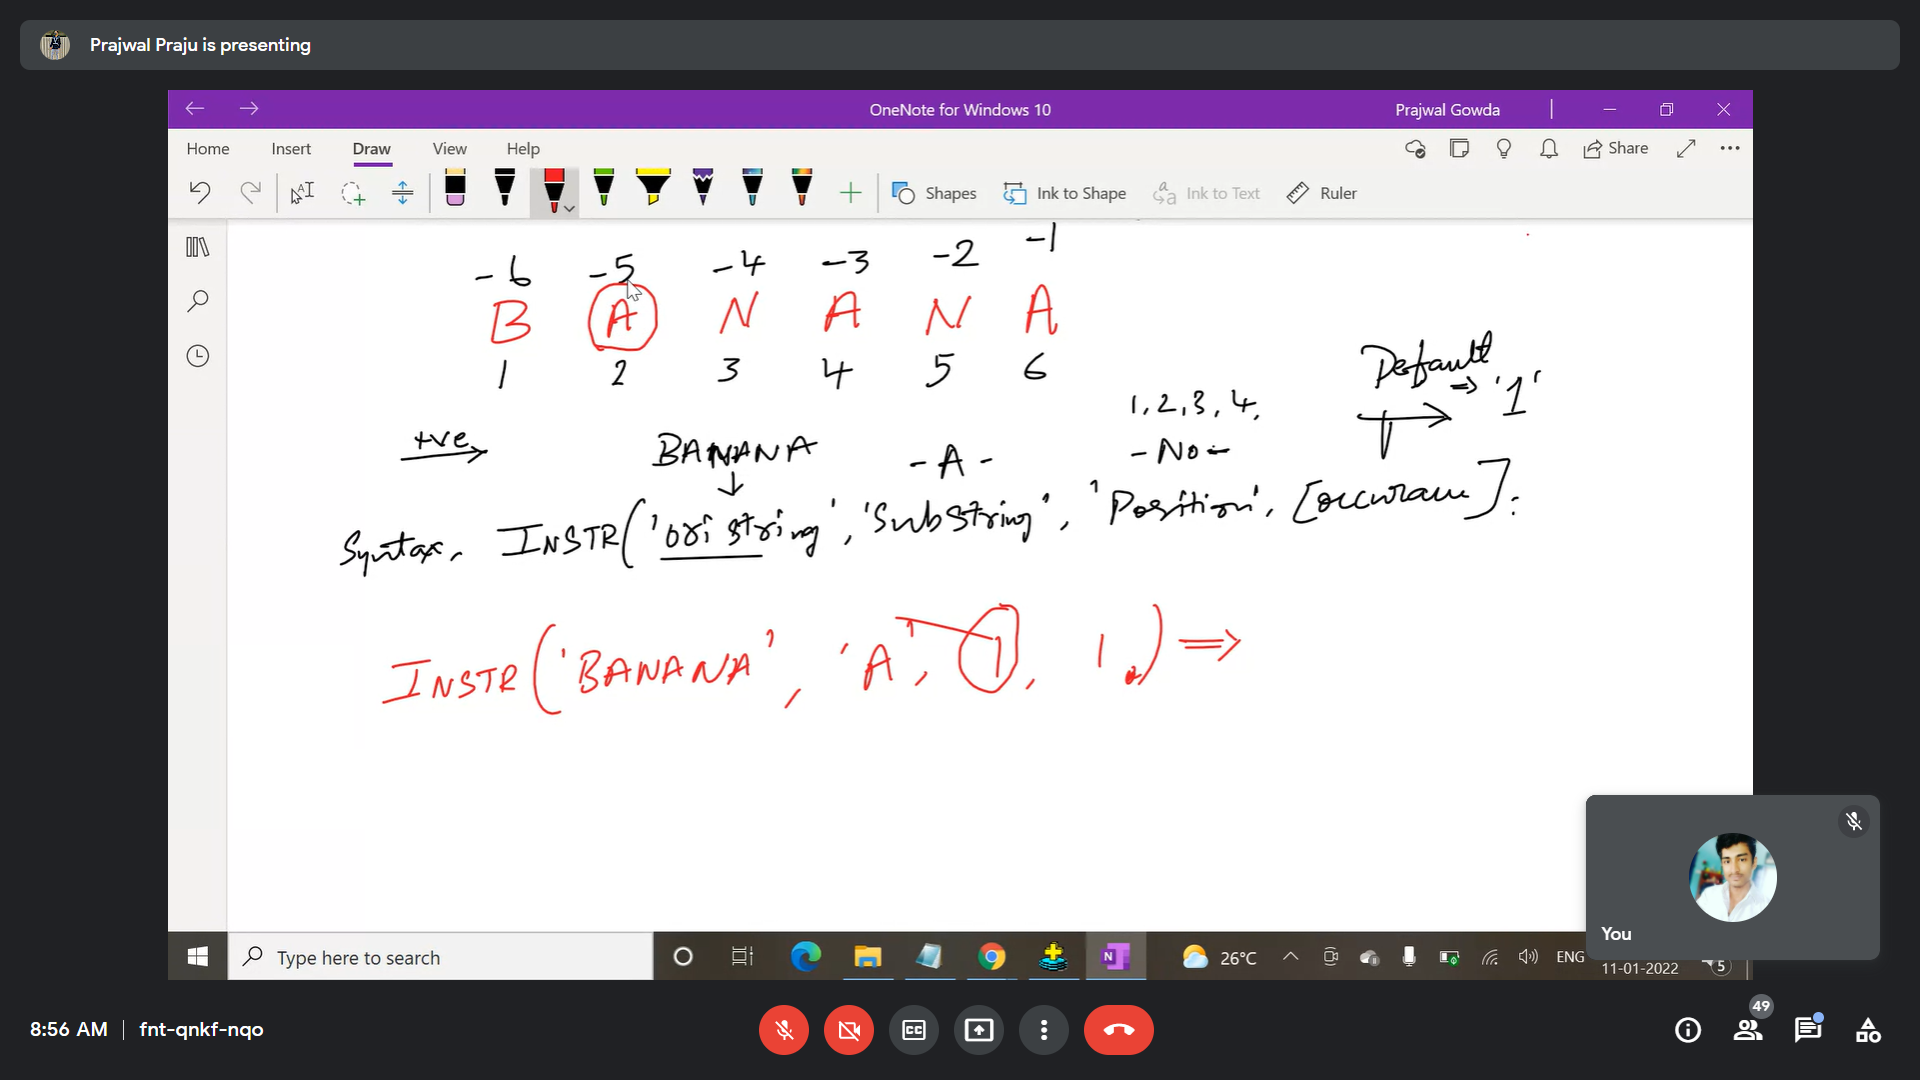 Prajwal Praju is presenting
OneNote for Windows 10
Prajwal Gowda
Home Insert Draw View Help
Share
Shapes Ink to Shape Ink to Text Ruler
-6 -5 -4 -3 -2 -1
B A N A N A
1 2 3 4 5 6
Default
=> '1'
1, 2, 3, 4,
+ve
BANANA
- A -
- No -
Syntax, INSTR('ori string', 'Substring', 'Position', [occurance]:
INSTR('BANANA', 'A', 1, 1,) =>
You
Type here to search
26°C
ENG
11-01-2022
5
8:56 AM | fnt-qnkf-nqo
CC
49